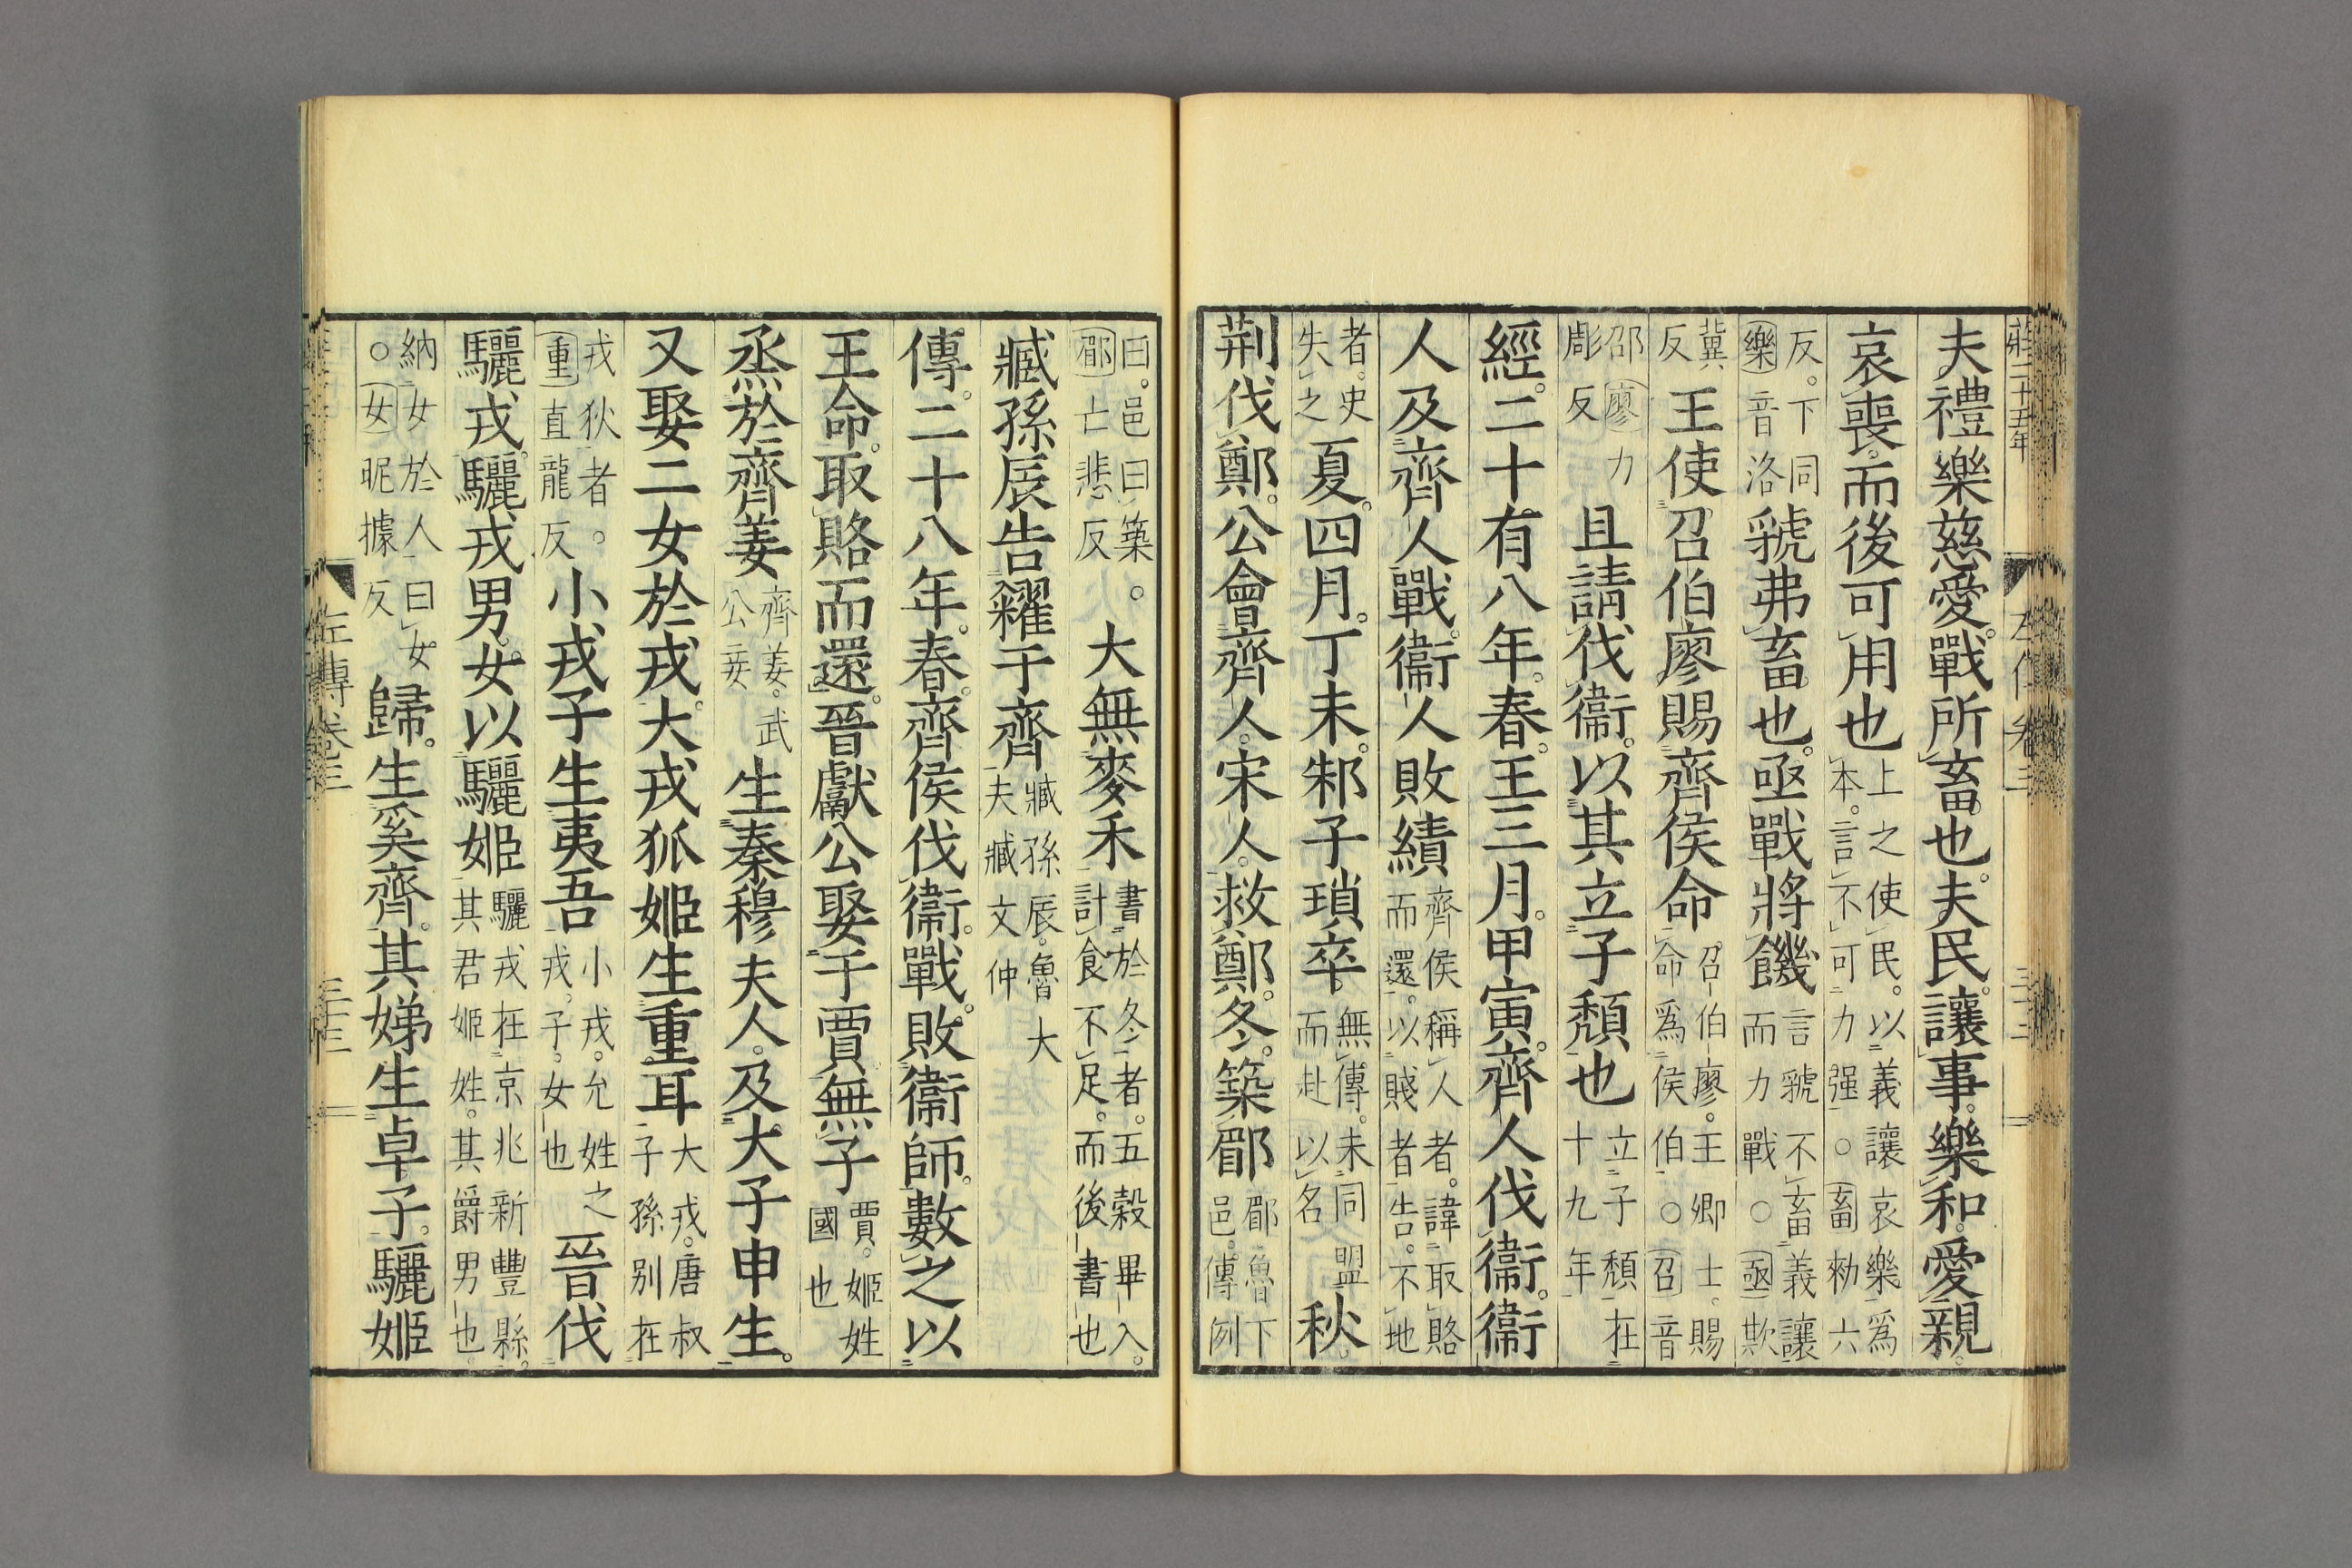 莊二十五年
夫禮樂慈愛。戰所畜也。夫民。讓事。樂和。愛親。
哀喪。而後可用也上之使民。以義讓哀樂爲本。言不可力强。○畜勑六
反。下同樂音洛虢弗畜也。亟戰將饑言虢不畜義讓而力戰○亟欺
冀反王使召伯廖賜齊侯命。召伯廖。王卿士。賜命爲侯伯○召音
邵廖力彫反且請伐衞。以其立子頹也立子頹在十九年
經。二十有八年。春。王三月。甲寅。齊人伐衞。衞
人及齊人戰。衞人敗績齊侯稱人者。諱取賂而還。以賤者告。不地
者。史失之夏。四月。丁未。邾子瑣卒。無傳。未同盟而赴以名秋。
荆伐鄭。公會齊人。宋人。救鄭。冬。築郿郿魯下邑。傳例
曰。邑曰築。郿亡悲反大無麥禾書於冬者。五穀畢入。計食不足。而後書也
臧孫辰告糴于齊臧孫辰。魯大夫臧文仲
傳。二十八年。春。齊侯伐衞。戰。敗衞師。數之以
王命。取賂而還。晉獻公娶于賈。無子賈。姬姓國也
烝於齊姜齊姜。武公妾生秦穆夫人。及大子申生。
又娶二女於戎。大戎狐姬生重耳大戎。唐叔子孫別在
戎狄者。重直龍反小戎子生夷吾小戎。允姓之戎。子。女也晉伐
驪戎。驪戎男。女以驪姬驪戎在京兆新豐縣。其君姬姓。其爵男也。
納女於人曰女。○女昵據反歸。生奚齊。其娣生卓子。驪姬
左傳卷三